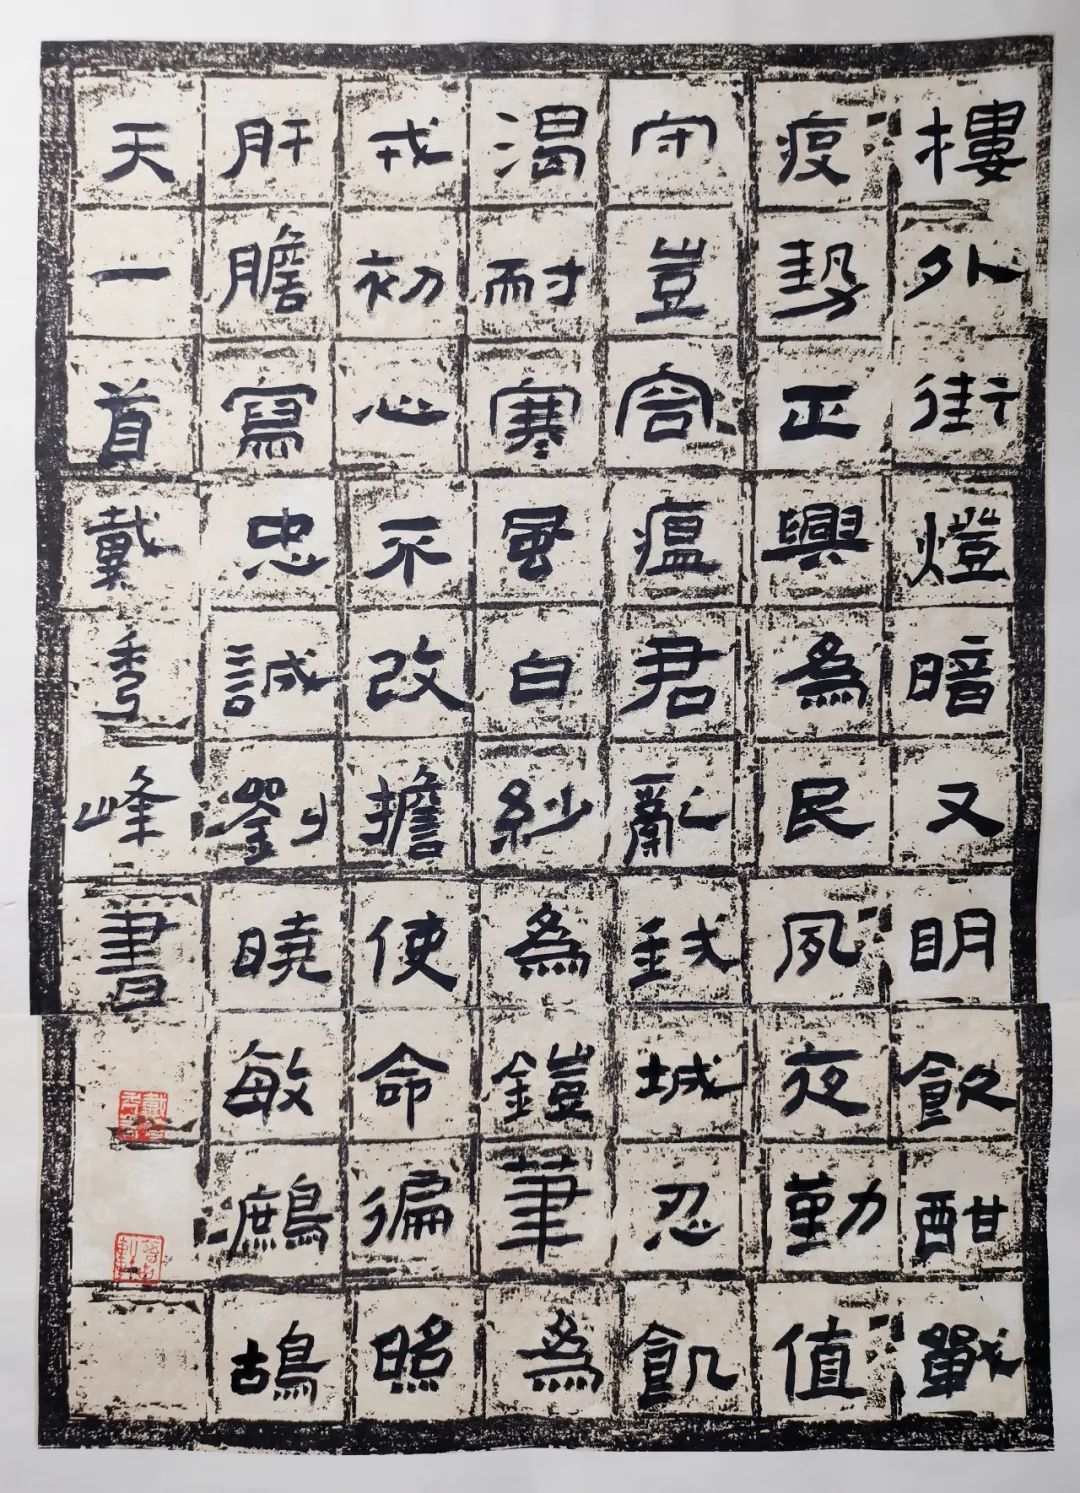 樓外街燈暗又明飲酣戰
疫勢正興為民夙夜勤值
守豈容瘟君亂鉞城忍飢
渴耐寒風白紗為鎧筆為
戎初心不改擔使命徧照
肝膽寫忠誠劉曉敏鷓鴣
天一首戴秀峰書